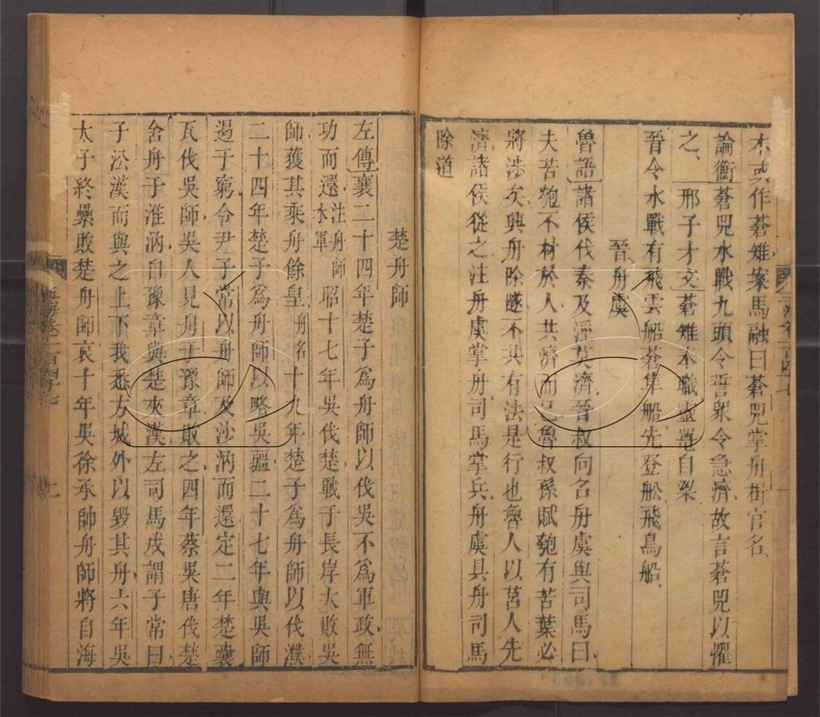 本或作蒼雉案馬融曰蒼兕掌舟楫官名
論衡蒼兕水戰九頭令誓衆令急濟故言蒼兕以懼
之 邢子才文蒼雉奉職靈鼉自梁
晉令水戰有飛雲船蒼隼船先登船飛鳥船
晉舟虞
魯語諸侯伐秦及涇莫濟晉叔向名舟虞與司馬曰
夫苦匏不材於人共濟而已魯叔孫賦匏有苦葉必
將涉矣具舟除隧不共有法是行也魯人以莒人先
濟諸侯從之注舟虞掌舟司馬掌兵舟虞具舟司馬
除道
楚舟師
左傳襄二十四年楚子為舟師以伐吳不為軍政無
功而還注舟師水軍昭十七年吳伐楚戰于長岸大敗吳
師獲其乘舟餘皇舟名十九年楚子為舟師以伐濮
二十四年楚子為舟師以略吳疆二十七年與吳師
遇于窮令尹子常以舟師及沙汭而還定二年楚囊
瓦伐吳師吳人見舟于豫章敗之四年蔡吳唐伐楚
舍舟于淮汭自豫章與楚夾漢左司馬戌謂子常曰
子沿漢而與之上下我悉方城外以毀其舟六年吳
太子終纍敗楚舟師哀十年吳徐承帥舟師將自海